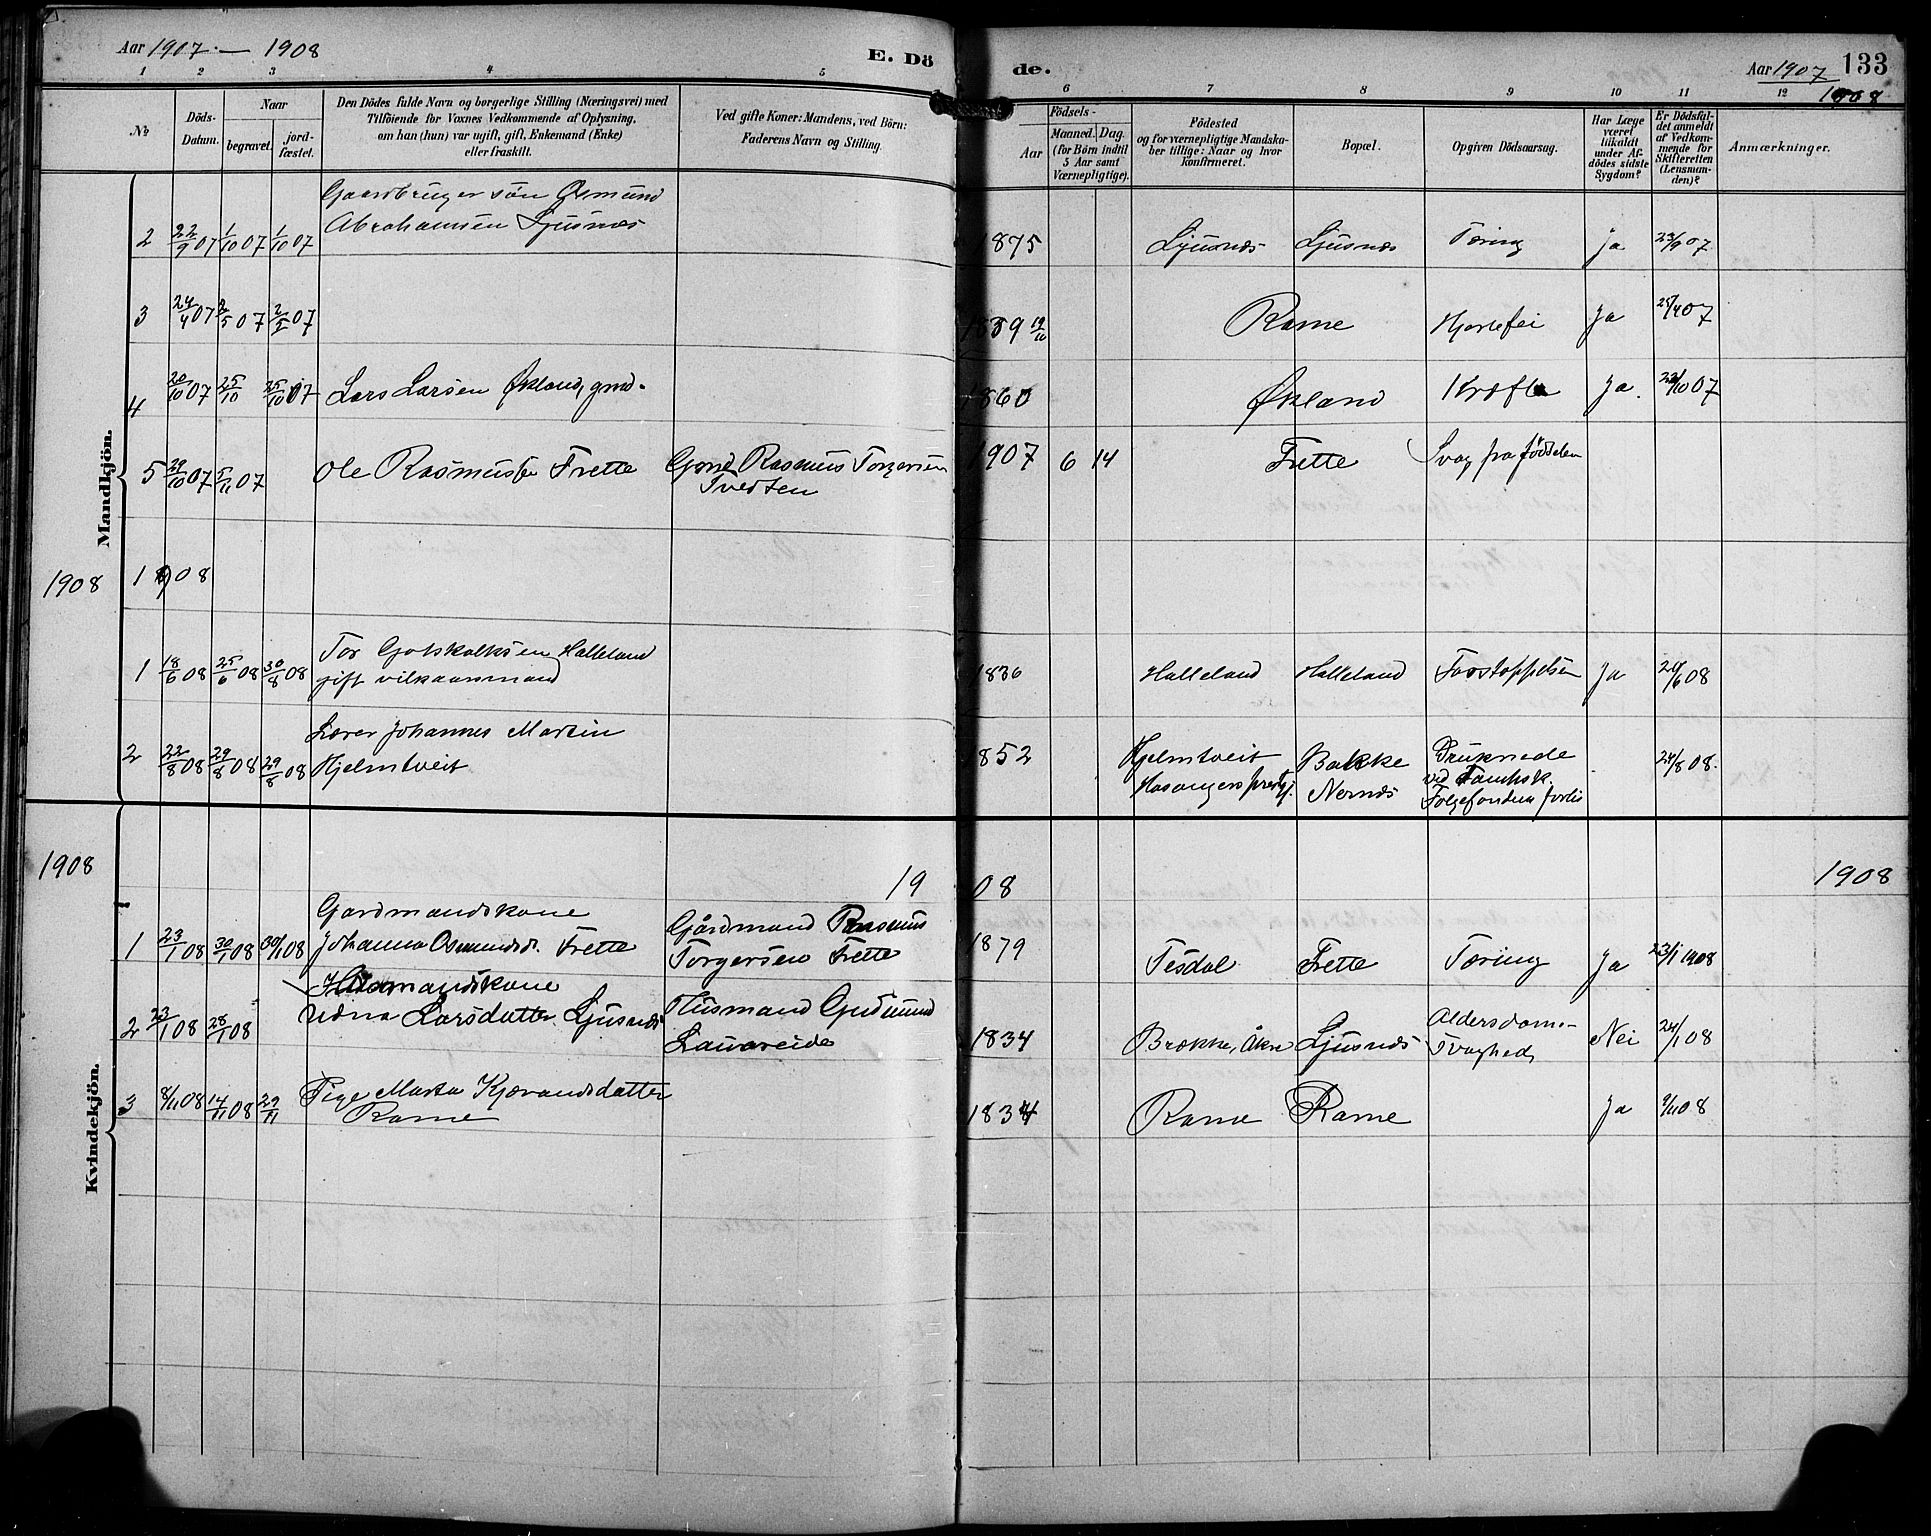 Aar 1907 — 1908
E. Dö
de.
Aar 1907
1908
133
1 2 3 4 5
6 7 8 9 10 11 12
№
Döds-
Datum.
Naar
begravet.
jord-
fæstet.
Den Dödes fulde Navn og borgerlige Stilling (Næringsvei) med
Tilföiende for Voxnes Vedkommende af Oplysning,
om han (hun) var ugift, gift, Enkemand (Enke)
eller fraskilt.
Ved gifte Koner: Mandens, ved Börn:
Faderens Navn og Stilling.
Födsels-
Aar
Maaned. Dag.
(for Börn indtil
5 Aar samt
Værnepligtige).
Födested
og for værnepligtige Mandska-
ber tillige: Naar og hvor
konfirmeret.
Bopæl.
Opgiven Dödsaarsag.
Har Læge
været
tilkaldt
under Af-
dödes sidste
Sygdom?
Er Dödsfal-
det anmeldt
af Vedkom-
mende for
Skifteretten
(Lensman-
den)?
Anmærkninger.
Mandkjön.
Gaardbruger sön Osmund
2 22/9 07 1/10 07 1/10 07 Abrahamsen Ljusnes 1875 Ljusnes Ljusnes Tæring Ja 23/9 07
3 24/4 07 2/5 07 2/5 07 1889 Rame Hjertefei Ja 25/4 07
4 20/10 07 25/10 25/10 07 Lars Larsen Økland, gmd. 1860 Økland Kræft Ja. 23/10 07
5 29/10 07 5/11 07 Ole Rasmussen Frette Gmd. Rasmus Torgersen 1907 6 14 Frette Svag fra födselen
Tvedten
1908 1908
Tor Gotskalksen Halleland
1 18/6 08 25/6 08 30/8 08 gift vilkaarmand 1836 Halleland Halleland Forstoppelse Ja 20/6 08
Lærer Johannes Martin
2 22/8 08 29/8 08 29/8 08 Hjelmtveit 1852 Hjelmtveit Bakke Druknede 24/8 08.
Hosangers prestgj. Nernes ved
Folgefonden forlis
1908 1908 1908
Kvindekjön.
Gardmandskone
1 23/1 08 30/1 08 30/1 08 Johanna Osmundsd. Frette Gårdmand Rasmus 1879 Tesdal Frette Tæring Ja 23/1 1908
Torgersen Frette
Husmandskone
2 23/1 08 28/1 08 Larsdatter Ljusnes Husmand Gudmund 1834 Brekke, Åkre Ljusnes Alderdoms- Nei 24/1 08
Lauareide svaghed
3 8/11 08 14/11 08 29/11 Pige Marta Kjærandsdatter 1834 Rame Rame Ja 9/11 08
Rame